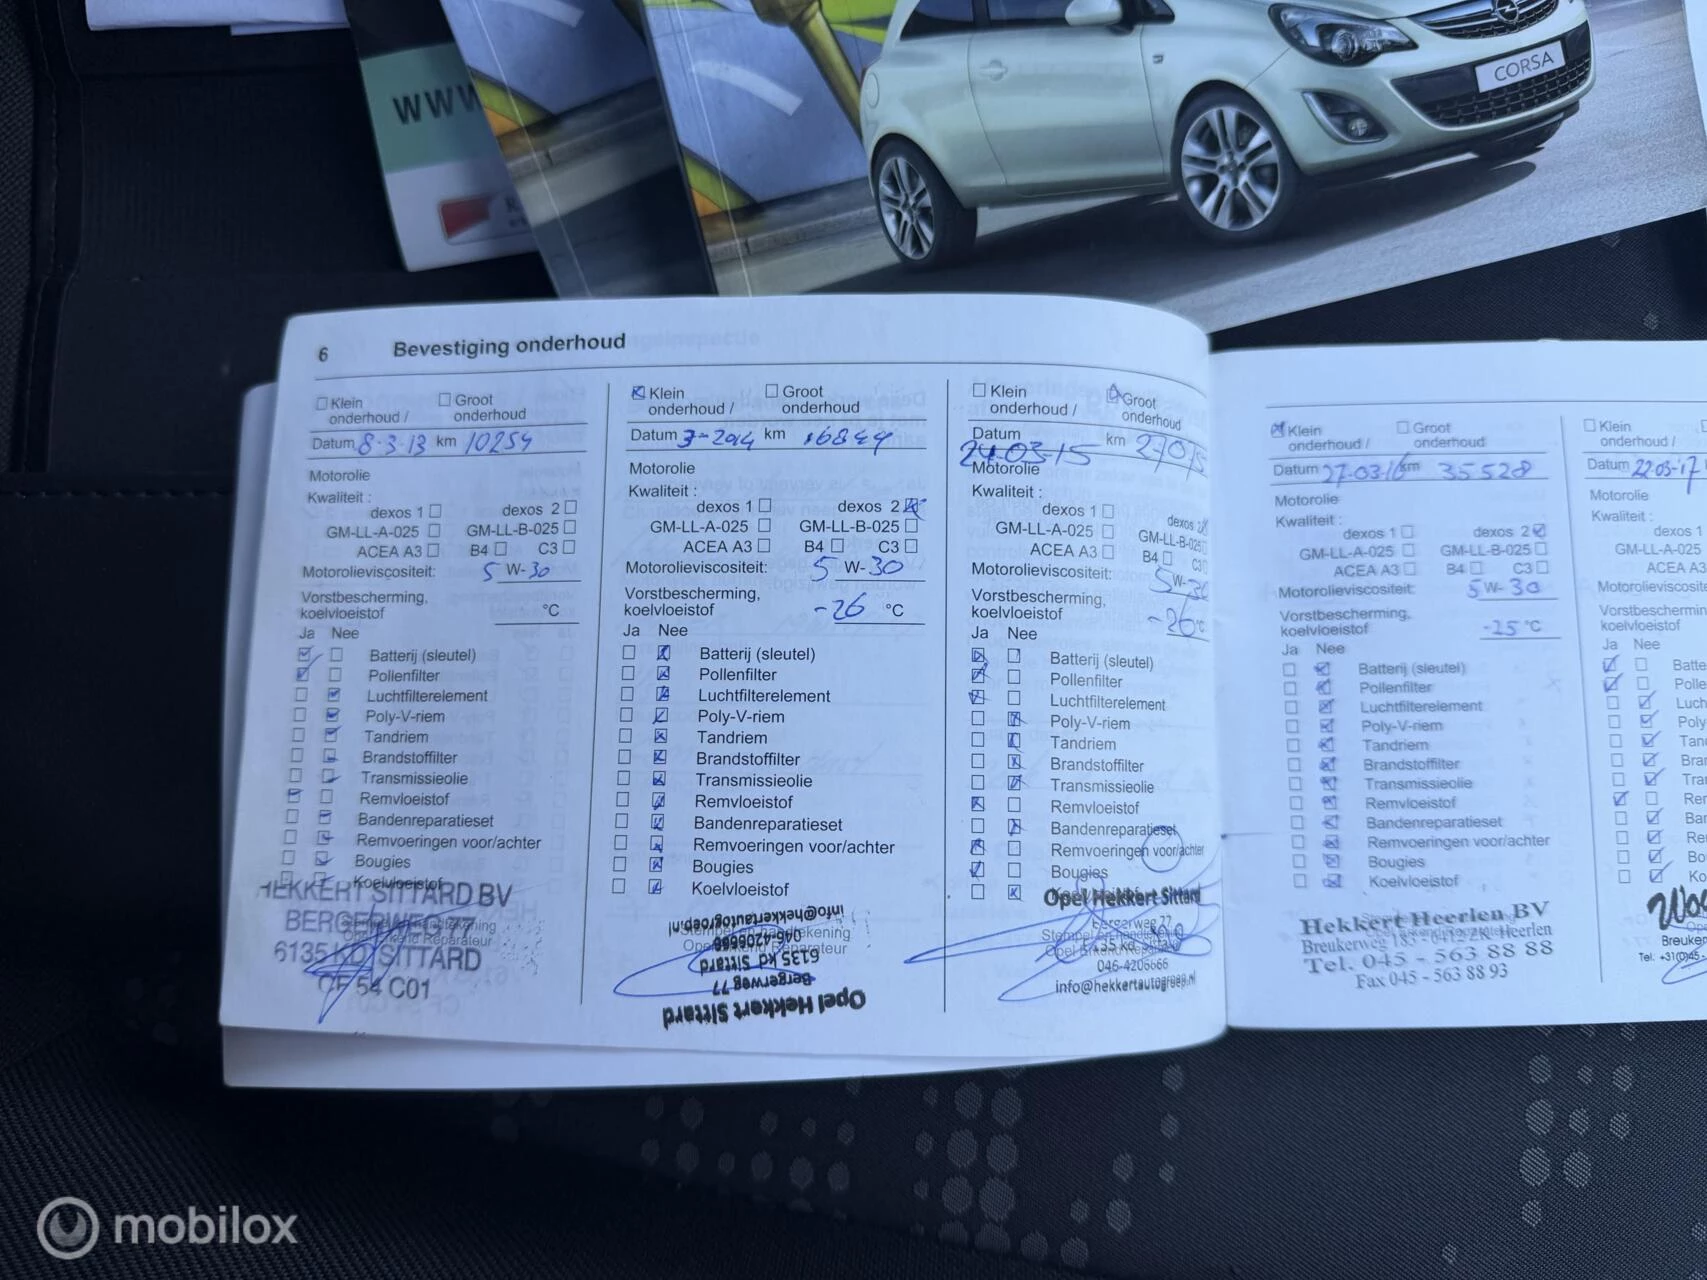 WWW
CORSA
6 Bevestiging onderhoud
Klein onderhoud /
Groot onderhoud
Datum 8-3-13 km 10254
Motorolie
Kwaliteit :
dexos 1 dexos 2
GM-LL-A-025 GM-LL-B-025
ACEA A3 B4 C3
Motorolieviscositeit: 5 W-30
Vorstbescherming,
koelvloeistof °C
Ja Nee
Batterij (sleutel)
Pollenfilter
Luchtfilterelement
Poly-V-riem
Tandriem
Brandstoffilter
Transmissieolie
Remvloeistof
Bandenreparatieset
Remvoeringen voor/achter
Bougies
Koelvloeistof
HEKKERT SITTARD BV
BERGERWEG 77
6135 KD SITTARD
CF 54 C01
Klein onderhoud /
Groot onderhoud
Datum 3-2014 km 16849
Motorolie
Kwaliteit :
dexos 1 dexos 2
GM-LL-A-025 GM-LL-B-025
ACEA A3 B4 C3
Motorolieviscositeit: 5 W-30
Vorstbescherming,
koelvloeistof -26 °C
Ja Nee
Batterij (sleutel)
Pollenfilter
Luchtfilterelement
Poly-V-riem
Tandriem
Brandstoffilter
Transmissieolie
Remvloeistof
Bandenreparatieset
Remvoeringen voor/achter
Bougies
Koelvloeistof
info@hekkertautogroep.nl
046-4206666
6135 kd Sittard
Bergerweg 77
Opel Hekkert Sittard
Klein onderhoud /
Groot onderhoud
Datum 24-03-15 km 27075
Motorolie
Kwaliteit :
dexos 1 dexos 2
GM-LL-A-025 GM-LL-B-025
ACEA A3 B4 C3
Motorolieviscositeit: 5 W-30
Vorstbescherming,
koelvloeistof -26 °C
Ja Nee
Batterij (sleutel)
Pollenfilter
Luchtfilterelement
Poly-V-riem
Tandriem
Brandstoffilter
Transmissieolie
Remvloeistof
Bandenreparatieset
Remvoeringen voor/achter
Bougies
Opel Hekkert Sittard
Bergerweg 77
6135 kd Sittard
046-4206666
info@hekkertautogroep.nl
Klein onderhoud /
Groot onderhoud
Datum 27-03-16 km 35528
Motorolie
Kwaliteit :
dexos 1 dexos 2
GM-LL-A-025 GM-LL-B-025
ACEA A3 B4 C3
Motorolieviscositeit: 5 W-30
Vorstbescherming,
koelvloeistof -25 °C
Ja Nee
Batterij (sleutel)
Pollenfilter
Luchtfilterelement
Poly-V-riem
Tandriem
Brandstoffilter
Transmissieolie
Remvloeistof
Bandenreparatieset
Remvoeringen voor/achter
Bougies
Koelvloeistof
Hekkert Heerlen BV
Breukerweg 183 - 6412 ZK Heerlen
Tel. 045 - 563 88 88
Fax 045 - 563 88 93
Klein onderhoud /
Datum 22-03-17
Motorolie
Kwaliteit :
dexos 1
GM-LL-A-025
ACEA A3
Motorolieviscositeit
Vorstbescherming
koelvloeistof
Ja Nee
Breuker
Tel. +31(0)45-
mobilox